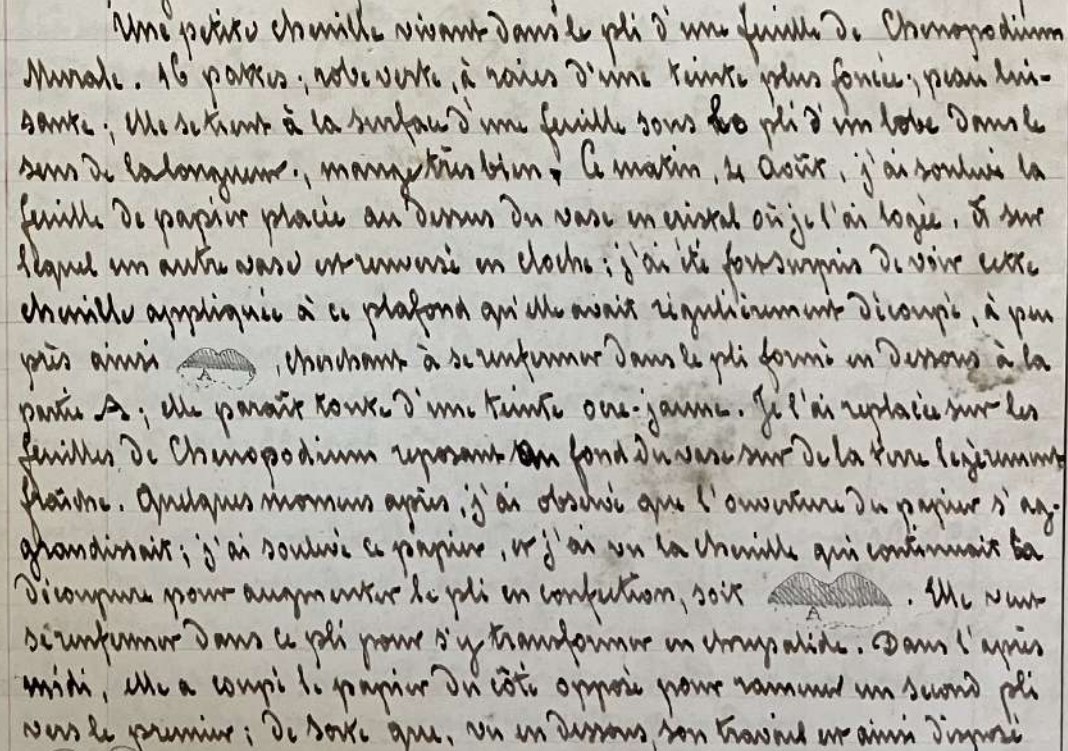 Une petite chenille vivant dans le pli d'une feuille de Chenopodium
Murale. 16 pattes; robe verte, à raies d'une teinte plus foncée; peau lui-
sante; elle se tient à la surface d'une feuille sous le pli d'un lobe dans le
sens de la longueur, mange très bien. Ce matin, 24 Août, j'ai soulevé la
feuille de papier placée au dessus du vase en cristal où je l'ai logée, et sur
lequel un autre vase est renversé en cloche; j'ai été fort surpris de voir cette
chenille appliquée à ce plafond qu'elle avait régulièrement découpé, à peu
près ainsi , cherchant à se renfermer dans le pli formé en dessous à la
partie A; elle paraît toute d'une teinte ocre-jaune. Je l'ai replacée sur les
feuilles de Chenopodium reposant au fond du vase sur de la terre légèrement
fraîche. Quelques momens après, j'ai observé que l'ouverture du papier s'ag-
grandissait; j'ai soulevé ce papier, et j'ai vu la chenille qui continuait la
découpure pour augmenter le pli en confection, soit A . Elle veut
se renfermer dans ce pli pour s'y transformer en chrysalide. Dans l'après
midi, elle a coupé le papier du côté opposé pour ramener un second pli
vers le premier; de sorte que, vu en dessous, son travail est ainsi disposé